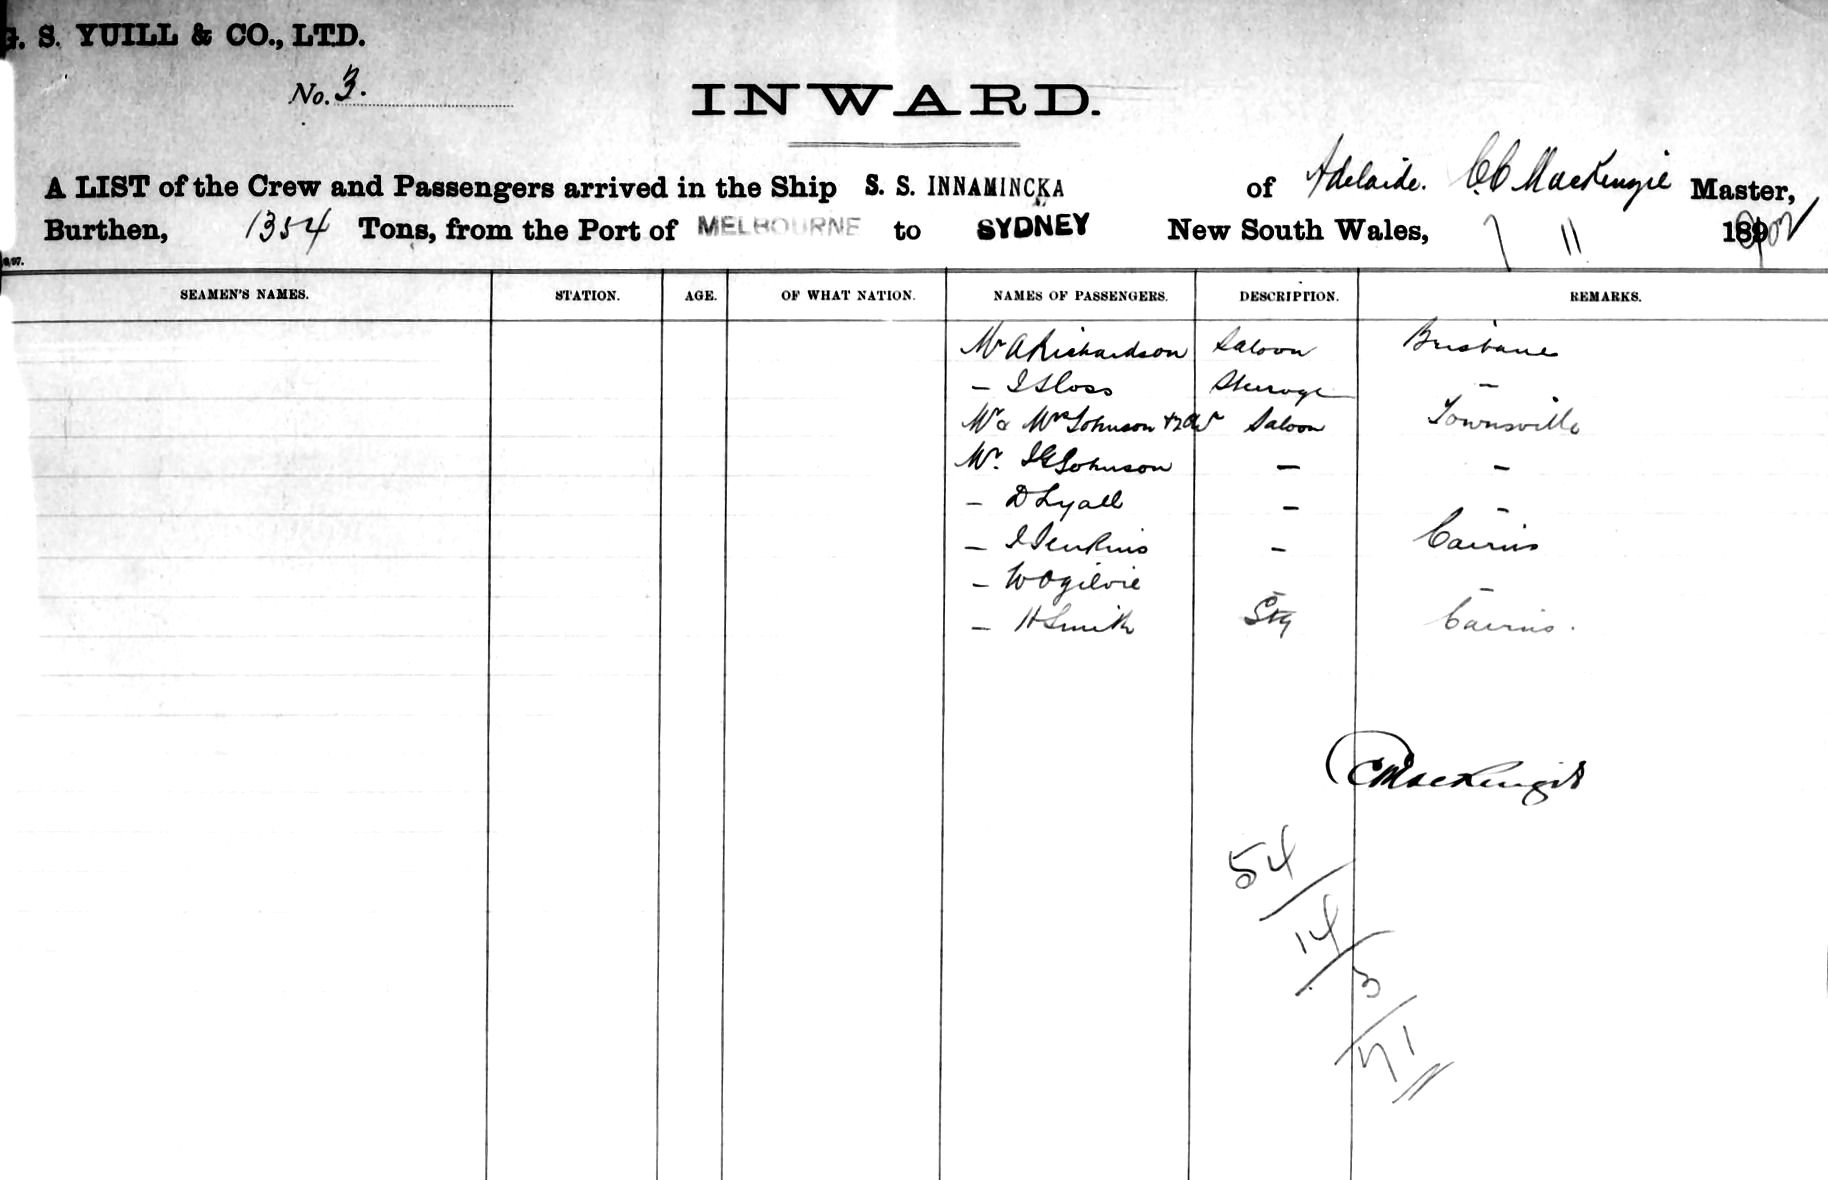 G. S. YUILL & CO., LTD.
No. 3.
INWARD.
A LIST of the Crew and Passengers arrived in the Ship S. S. INNAMINCKA of Adelaide. C C MacKenzie Master,
Burthen, 1354 Tons, from the Port of MELBOURNE to SYDNEY New South Wales, 7 11 1902
SEAMEN'S NAMES. STATION. AGE. OF WHAT NATION. NAMES OF PASSENGERS. DESCRIPTION. REMARKS.
Mr A Richardson Saloon Brisbane
– I Sloss Steerage –
Mr & Mrs Johnson Saloon Townsville
Mr. Johnson – –
– D Lyall – –
– J Jenkins – Cairns
– W Ogilvie – –
– H Smith Stg Cairns.
C MacKenzie
54
14
3
71